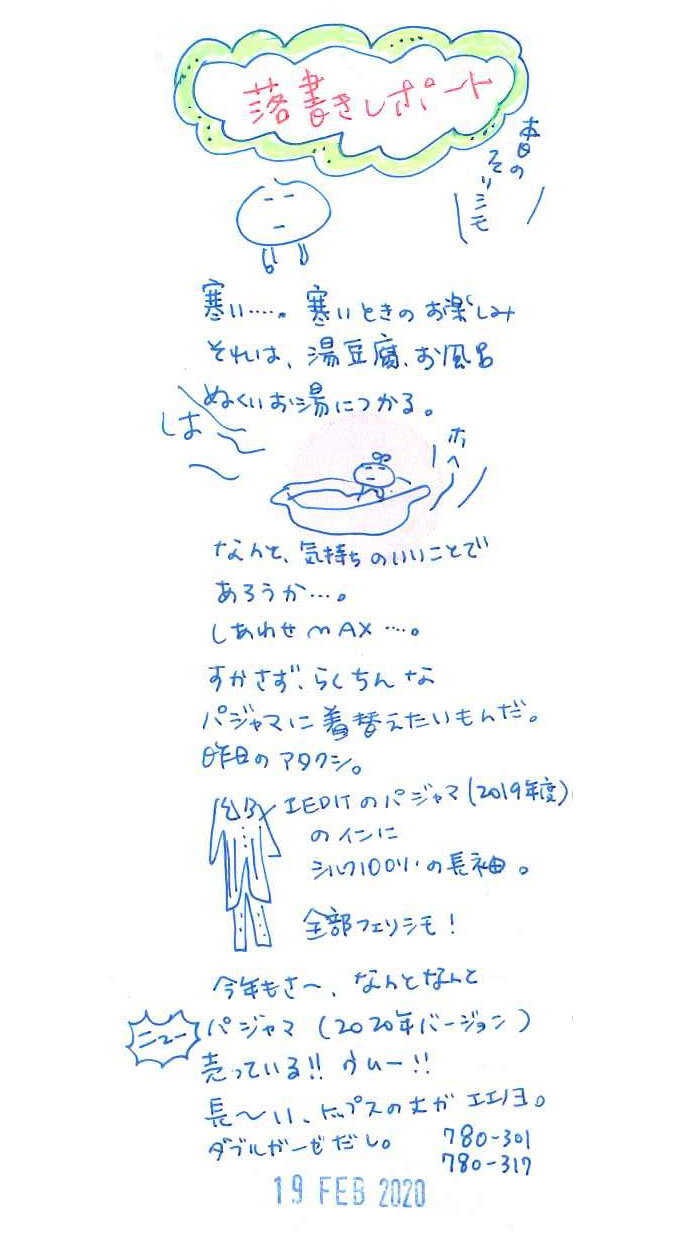 落書きレポート
本日の
フェリシモ
寒い‥‥。寒いときのお楽しみ
それは、湯豆腐、お風呂
ぬくいお湯につかる。
ホヘ
なんと、気持ちのいいことで
あろうか‥‥。
しあわせMAX‥‥。
すかさず、らくちんな
パジャマに着替えたいもんだ。
昨日のアタクシ。
IEDITのパジャマ(2019年度)
のインに
シルク100%の長袖。
全部フェリシモ！
今年もさ〜、なんとなんと
ニュー
パジャマ (2020年バージョン)
売っている!! ウムー!!
長〜い、トップスの丈がエエノヨ。
ダブルガーゼだし。
780-301
780-317
19 FEB 2020